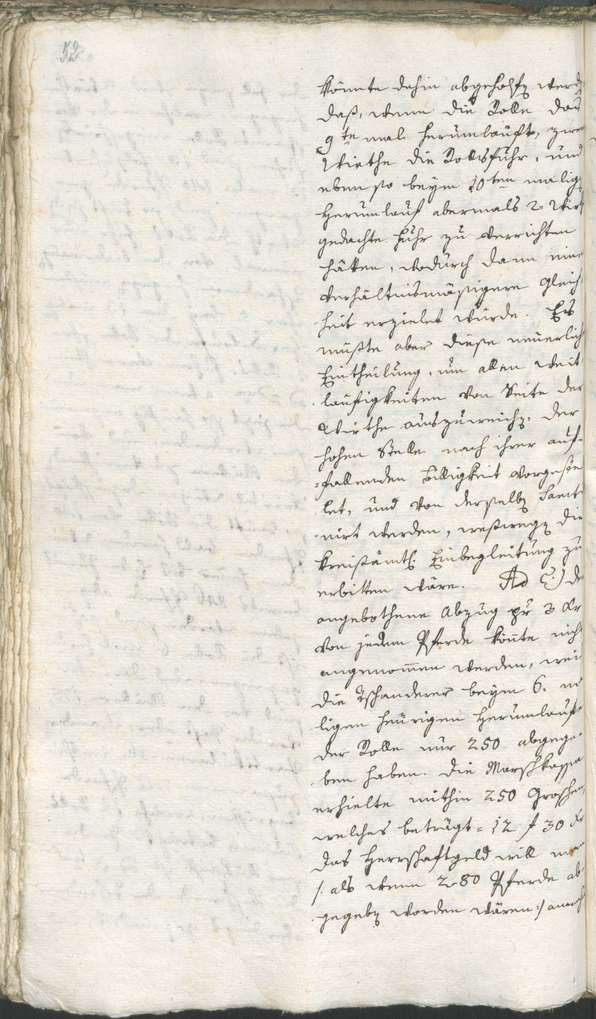 52
könnte dahin abgeholfen werd
daß, wenn die Rolle das
9te mal herumläuft, zwei
Wirthe die Rollsfuhr, und
eben so beym 10ten malig
Herumlauf abermals 2 Wir
gedachte Fuhr zu verrichten
hätten, wodurch dann eine
verhältnismäßigere Gleich
heit erzielet würde. Es
müßte aber diese neuerlich
Eintheilung, um allen Weit
läufigkeiten von Seite der
Wirthe auszuweichen, der
hohen Stelle nach ihrer auf-
fallenden Billigkeit vorgestel
let, und von derselben Sancti
onirt werden, weßwegen die
kreisämtl. Einbegleitung zu
erbitten wäre. Ad C:) de
angebothene Abzug pr 3 Kr
von jedem Pferde könte nich
angenommen werden, wei
die Tschanderer beym 6. m
ligen heurigen Herumlaufe
der Rolle nur 250 abgege-
ben haben. Die Marschkasse
erhielte mithin 250 Groschen
welches beträgt = 12 f 30 Kr
das Herrschaftgeld will ma
/: als wenn 280 Pferde ab
gegeben worden wären :/ auch